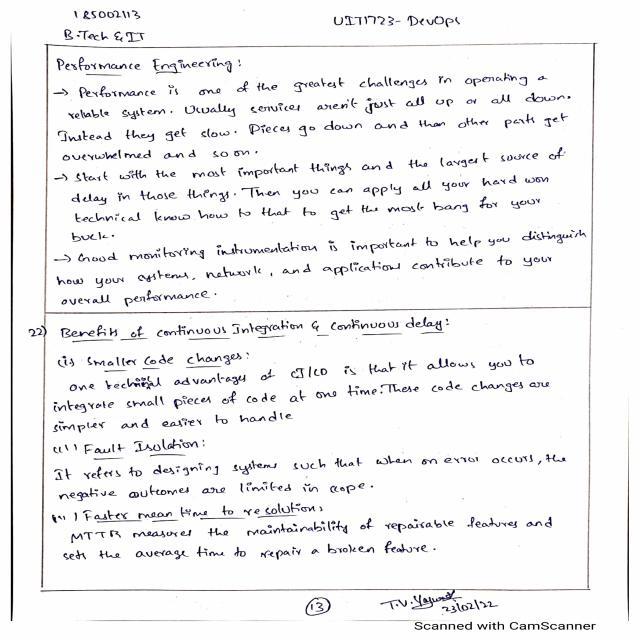 185002113
UIT1723- DevOps
B.Tech & IT
Performance Engineering:
→ Performance is one of the greatest challenges in operating a
reliable system. Usually services aren't just all up or all down.
Instead they get slow. Pieces go down and then other parts get
overwhelmed and so on.
→ Start with the most important things and the largest source of
delay in those things. Then you can apply all your hard won
technical know how to that to get the most bang for your
buck.
→ Good monitoring instrumentation is important to help you distinguish
how your systems, network, and applications contribute to your
overall performance.
22) Benefits of continuous Integration & continuous delay:
(i) Smaller Code changes:
one technical advantages of CI/CD is that it allows you to
integrate small pieces of code at one time. These code changes are
simpler and easier to handle
(ii) Fault Isolation:
It refers to designing systems such that when an error occurs, the
negative outcomes are limited in scope.
(iii) Faster mean time to resolution:
MTTR measures the maintainability of repairable features and
sets the average time to repair a broken feature.
13
T.V.
23/02/22
Scanned with CamScanner